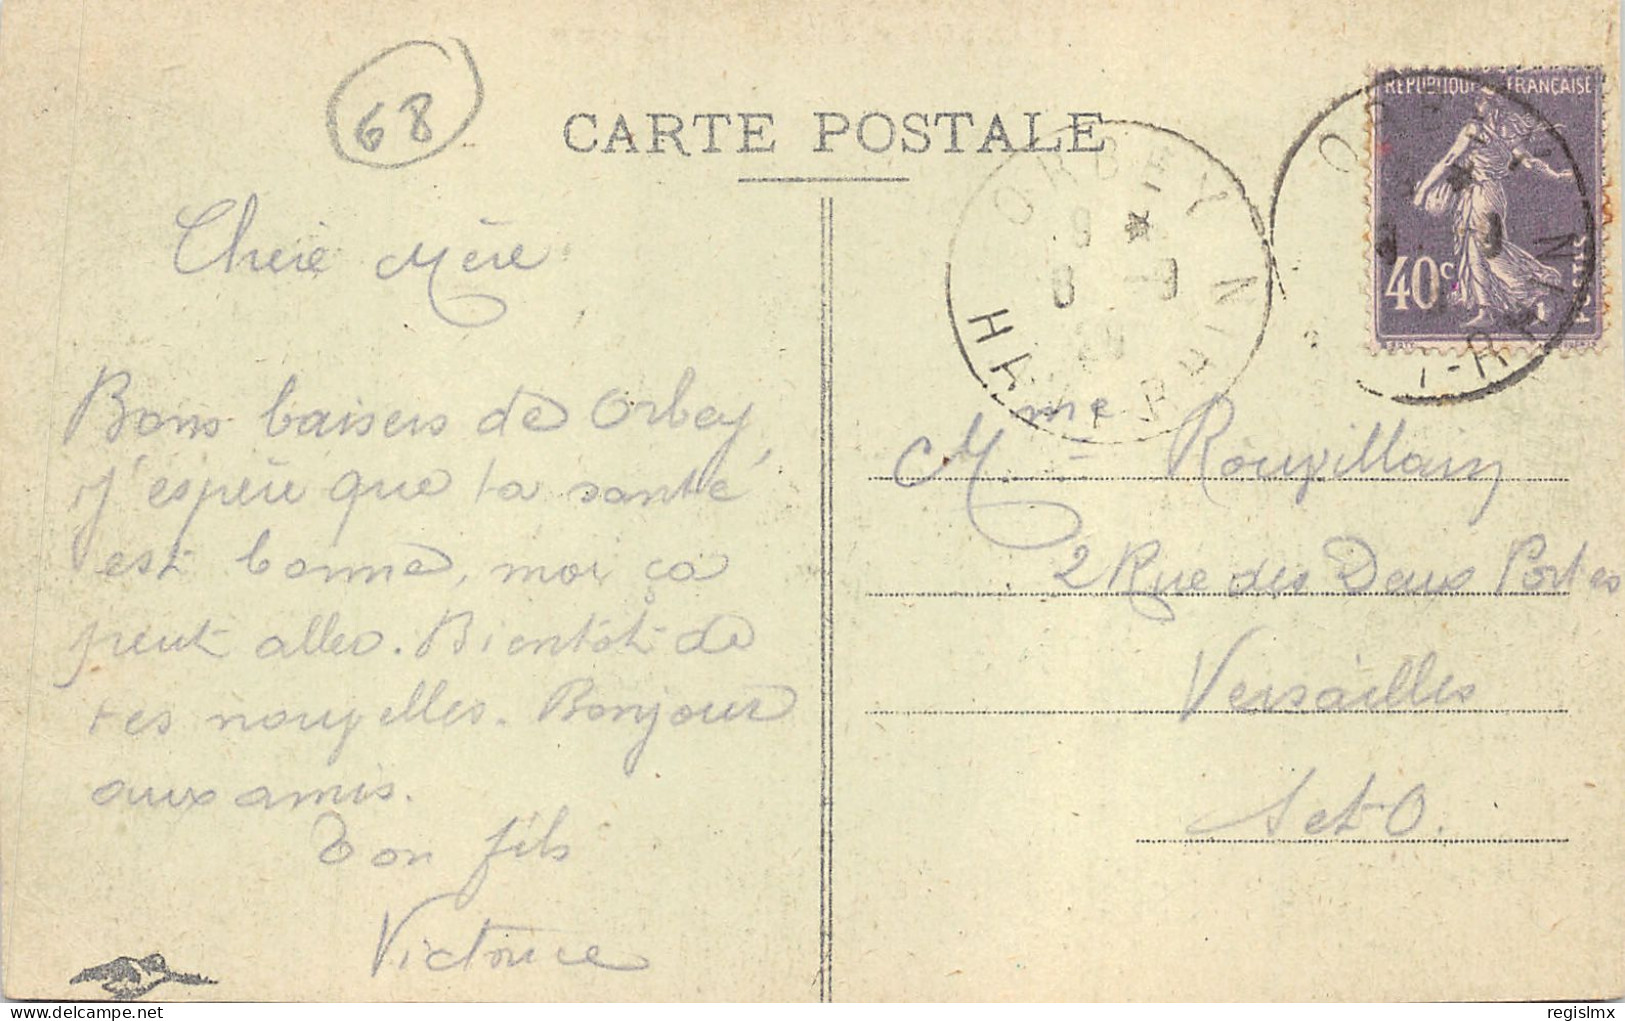 68
CARTE POSTALE
RÉPUBLIQUE FRANÇAISE
40c
POSTES
ORBEY
HAUT-RHIN
ORBEY
T-RHIN
Chère Mère
Bons baisers de Orbey,
j'espère que ta santé
est bonne, moi ça
peut aller. Bientôt de
tes nouvelles. Bonjour
aux amis.
Ton fils
Mme Rouvillain
2 Rue des Deux Portes
Versailles
S et O.
delcampe.net
regislmx